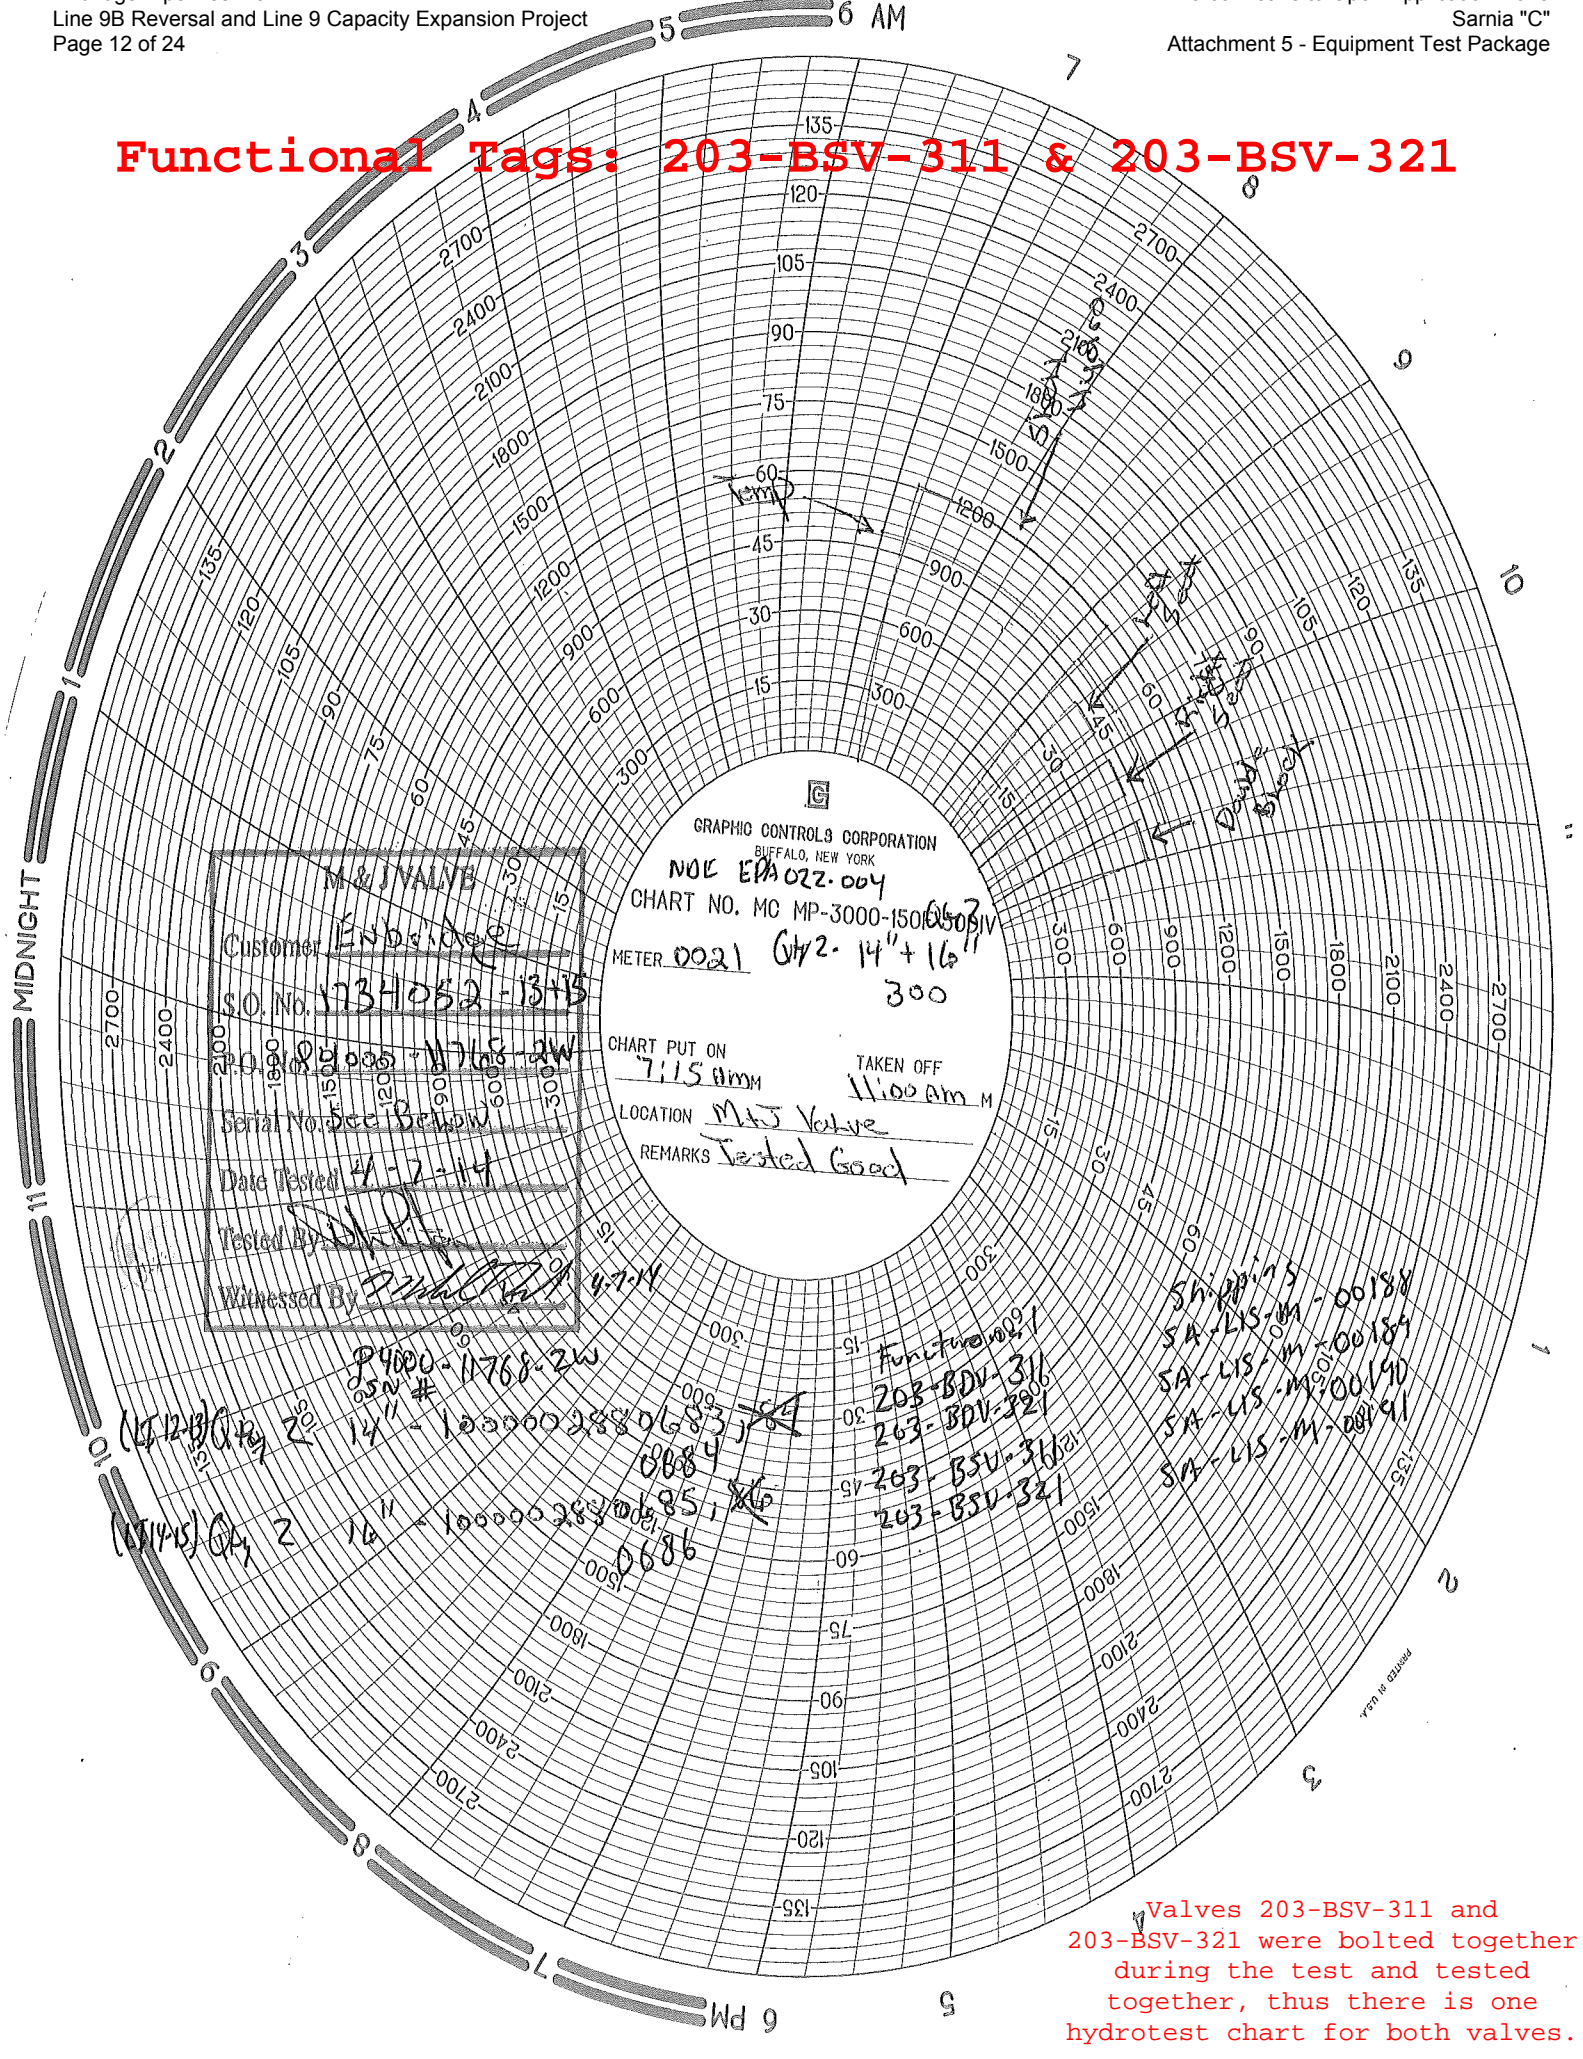 Line 9B Reversal and Line 9 Capacity Expansion Project
Page 12 of 24
Sarnia "C"
Attachment 5 - Equipment Test Package
Functional Tags: 203-BSV-311 & 203-BSV-321
6 AM
7
8
9
10
11
1
2
3
4
5
6 PM
7
8
9
10
11
MIDNIGHT
1
2
3
4
5
135
120
105
90
75
60
45
30
15
2700
2400
2100
1800
1500
1200
900
600
300
Temp.
Left Seat
Right Seat
Double Block
G
GRAPHIC CONTROLS CORPORATION
BUFFALO, NEW YORK
NDE EPA 022.004
CHART NO. MC MP-3000-150
METER 0021 Qty 2. 14" + 16"
300
CHART PUT ON
7:15 am M
TAKEN OFF
11:00 am M
LOCATION M+J Valve
REMARKS Tested Good
M & J VALVE
Customer Enbridge
S.O. No. 1734052-13+15
P.O. No. P4000-11768-2W
Serial No. See Below
Date Tested 4-7-14
Tested By
Witnessed By 4-7-14
P4000-11768-2W
SN #
Qty 2 14" - 1000002880683, 84
0684
Qty 2 16" - 1000002880685, 86
0686
Functional
203-BDV-311
203-BDV-321
203-BSV-311
203-BSV-321
Shipping
SA-LIS-M-00188
SA-LIS-M-00189
SA-LIS-M-00190
SA-LIS-M-00191
PRINTED IN U.S.A.
Valves 203-BSV-311 and
203-BSV-321 were bolted together
during the test and tested
together, thus there is one
hydrotest chart for both valves.